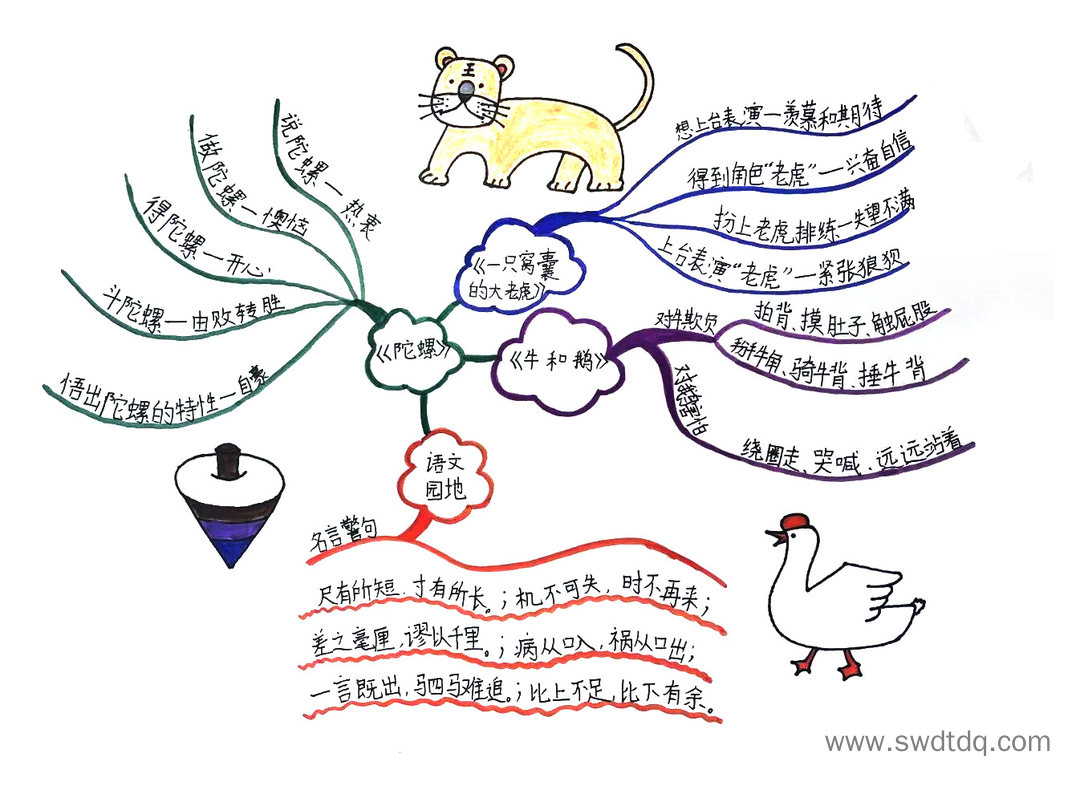 王
说陀螺—热衷
做陀螺—懊恼
得陀螺—开心
斗陀螺—由败转胜
悟出陀螺的特性—自豪
《陀螺》
《一只窝囊
的大老虎》
想上台表演—羡慕和期待
得到角色“老虎”—兴奋自信
扮上老虎,排练—失望不满
上台表演“老虎”—紧张狼狈
《牛和鹅》
对牛欺负
拍背、摸肚子、触屁股
扳牛角、骑牛背、捶牛背
对鹅害怕
绕圈走、哭喊、远远站着
语文
园地
名言警句
尺有所短,寸有所长。;机不可失,时不再来;
差之毫厘,谬以千里。;病从口入,祸从口出;
一言既出,驷马难追。;比上不足,比下有余。
www.swdtdq.com